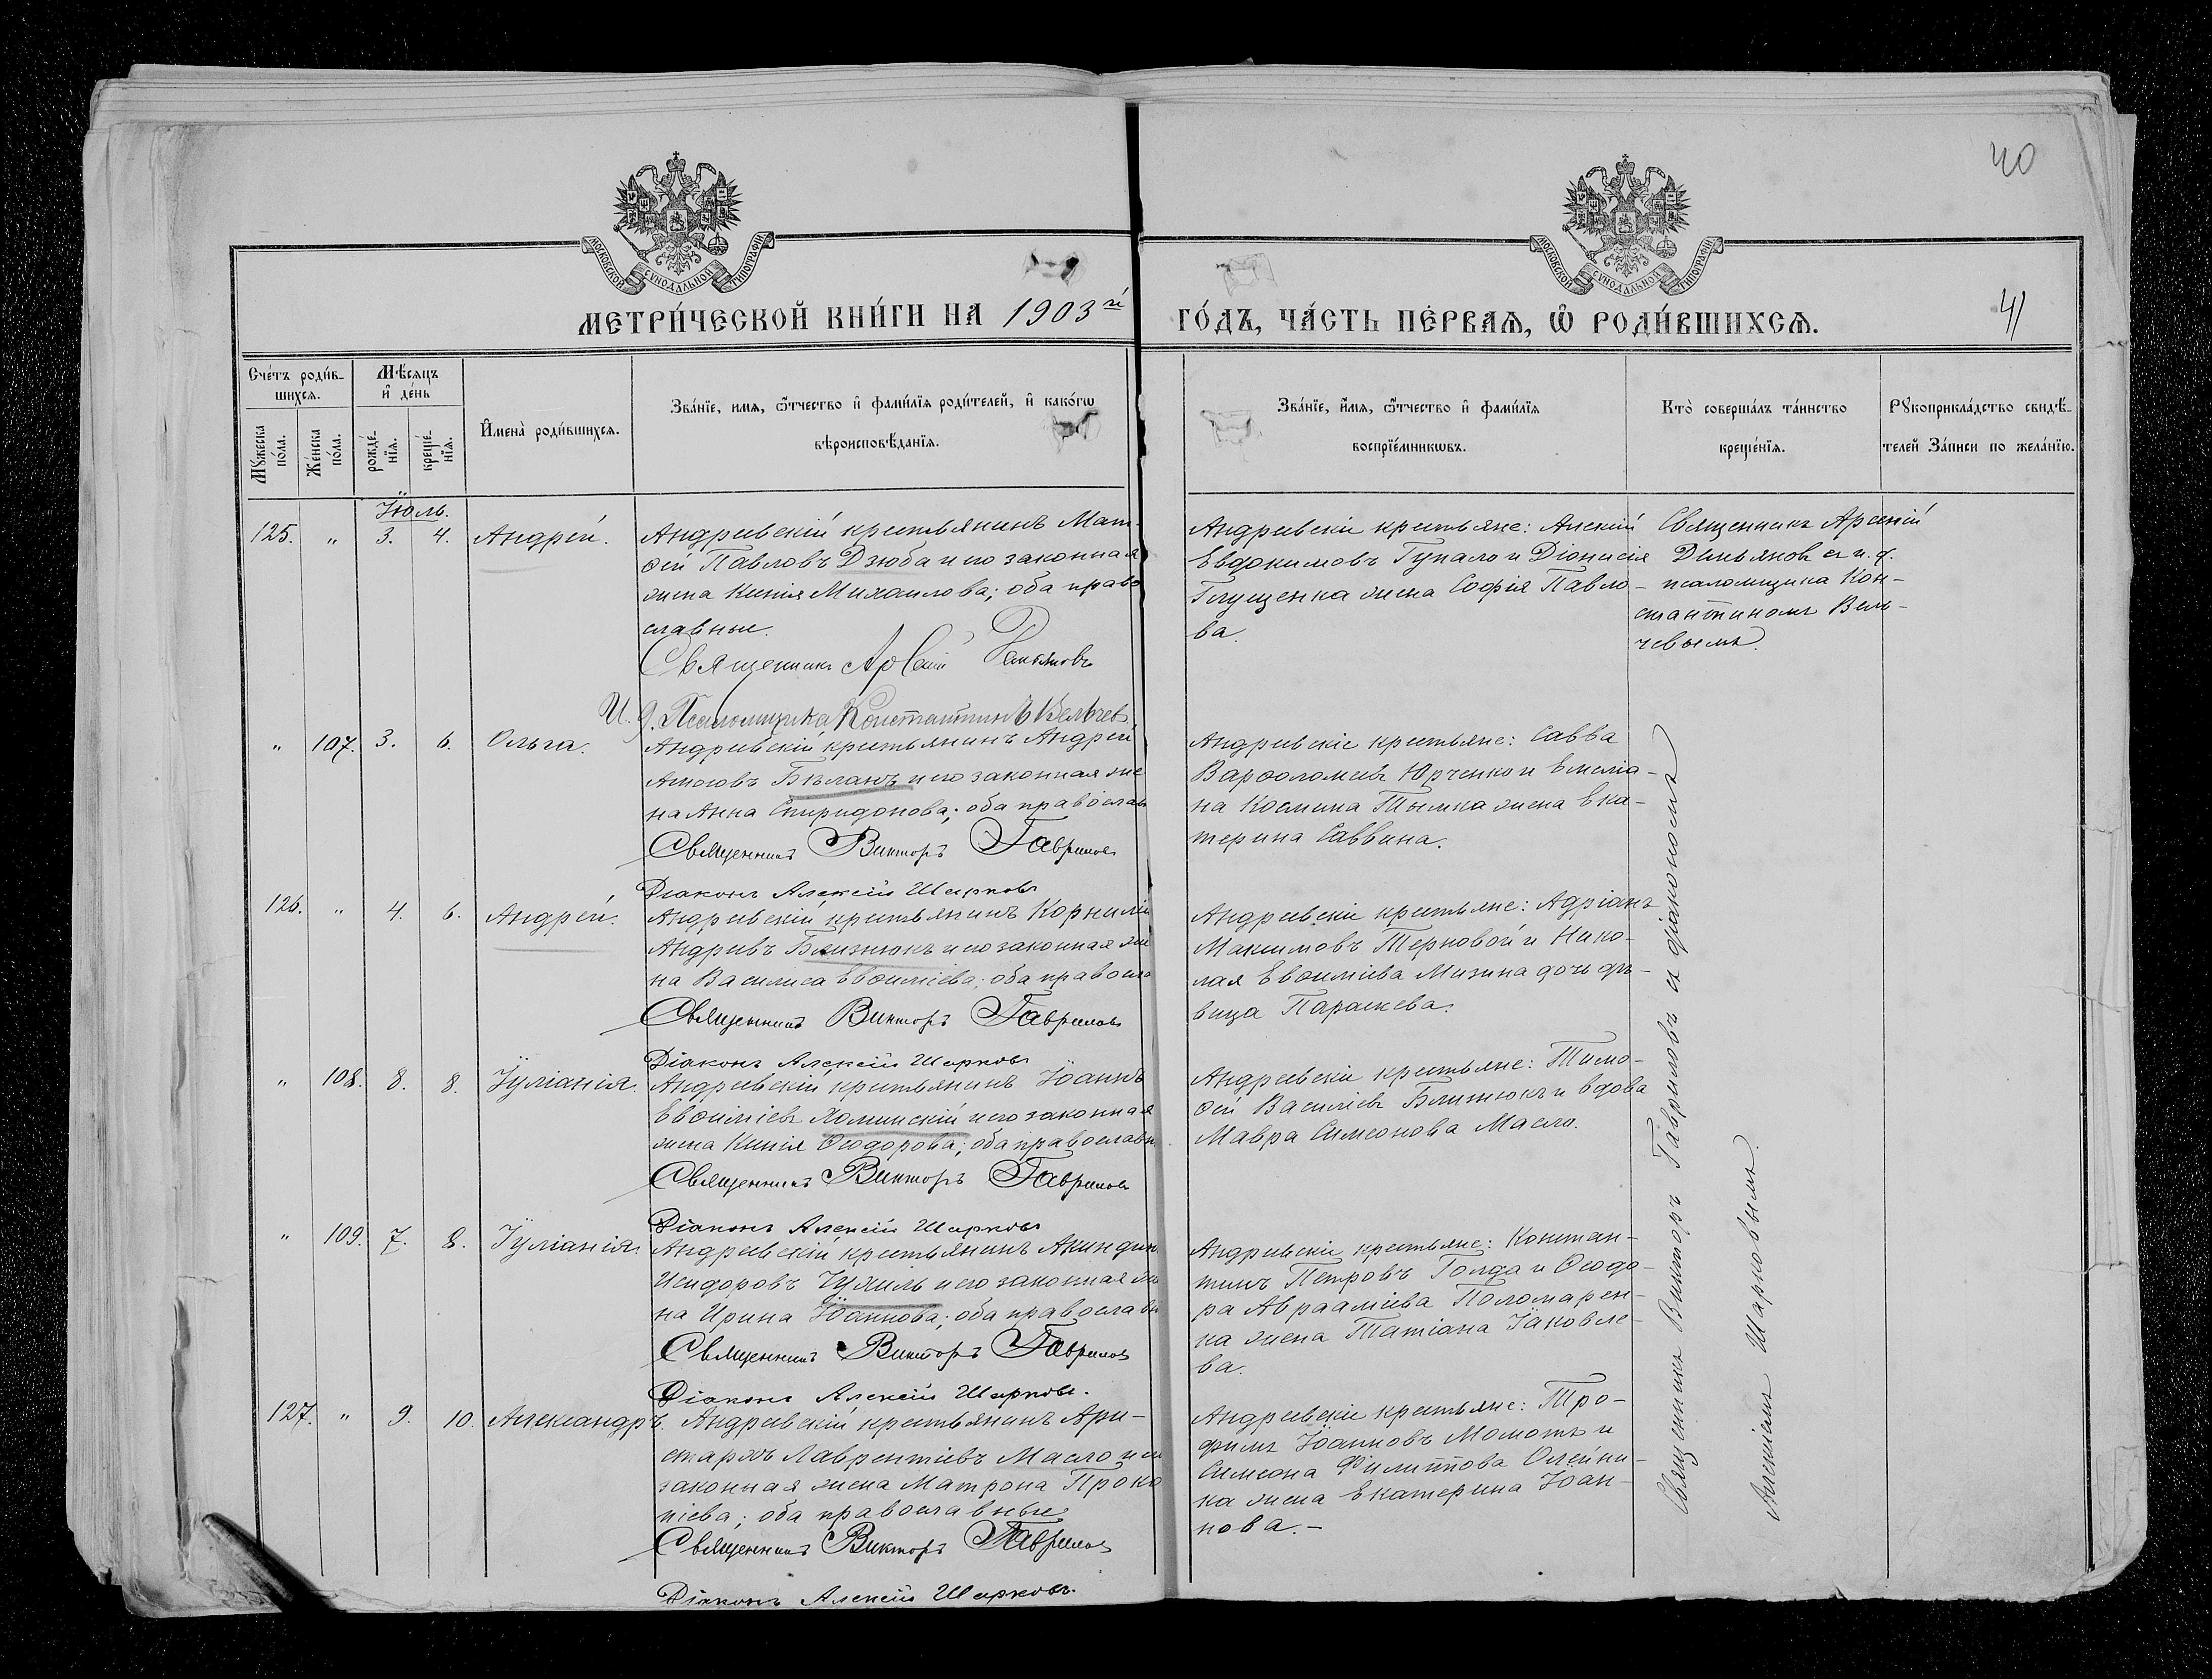 40
МОСКОВСКОЙ СѴНОДАЛЬНОЙ ТИПОГРАФІИ
МОСКОВСКОЙ СѴНОДАЛЬНОЙ ТИПОГРАФІИ
МЕТРИ́ЧЕСКОЙ КНИ́ГИ НА 1903й ГО́ДЪ, ЧА́СТЬ ПЕ́РВАѦ, Ѽ РОДИ́ВШИХСѦ.
41
Сче́тъ роди́в-
шихсѧ.
Мꙋ́жеска по́ла.
Же́нска по́ла.
Мѣ́сѧцъ и҆ де́нь
рожде́-
нїѧ.
креще́-
нїѧ.
И҆мена̀ роди́вшихсѧ.
Зва́нїе, имѧ, ѻ҆́тчество и҆ фами́лїѧ роди́телей, и҆ како́гѡ
вѣроисповѣ́данїѧ.
Зва́нїе, и҆́мѧ, ѻ҆́тчество и҆ фами́лїѧ
воспрїе́мникѡвъ.
Кто̀ соверша́лъ та́инство
креще́нїѧ.
Рꙋкоприкла́дство свидѣ́-
телей За́писи по жела́нїю.
Іюль.
125. " 3. 4. Андрей.
Андреевскій крестьянинъ Мат-
ѳей Павловъ Дзюба и его законная
жена Ксенія Михаилова; оба право
славные.
Священникъ Арсеній Демьяновъ
И. д. Псаломщика Константинъ Вельчев
Андреевскіе крестьяне: Алексій
Евдокимовъ Гупало и Діонисія
Глущенка жена Софія Павло-
ва.
Священникъ Арсеній
Демьяновъ съ и. д.
псаломщика Кон-
стантиномъ Вель-
чевымъ.
" 107. 3. 6. Ольга.
Андреевскій крестьянинъ Андрей
Бѣланъ и его законная же
на Анна Спиридонова; оба православ
Священникъ Викторъ Гавриловъ
Діаконъ Алексій Шарковъ
Андреевскіе крестьяне: Савва
Варѳоломеевъ Юрченко и Емелiа-
на Космина Тымка жена Ека-
терина Саввина.
126. " 4. 6. Андрей.
Андреевскій крестьянинъ Корнилій
Андреевъ Близнюкъ и его законная же
на Василиса Евѳиміева; оба правосла
Священникъ Викторъ Гавриловъ
Діаконъ Алексій Шарковъ
Андреевскіе крестьяне: Адріанъ
Максимовъ Терновой и Нико-
лая Евѳиміева Мизина дочь дѣ-
вица Параскева.
" 108. 8. 8. Іуліанія.
Андреевскій крестьянинъ Іоаннъ
Евѳиміевъ Хоминскій и его законная
жена Ксенія Ѳеодорова; оба православн
Священникъ Викторъ Гавриловъ
Діаконъ Алексій Шарковъ
Андреевскіе крестьяне: Тимо-
ѳей Василіевъ Близнюкъ и вдова
Мавра Симеонова Масло.
" 109. 7. 8. Іуліанія.
Андреевскій крестьянинъ Акиндин
Исидоровъ Чухиль и его законная же
на Ирина Іоаннова; оба православн
Священникъ Викторъ Гавриловъ
Діаконъ Алексій Шарковъ.
Андреевскіе крестьяне: Констан-
тинъ Петровъ Голда и Ѳеодо-
ра Авраамiева Поломарен-
ка жена Татіана Іаковле-
ва.
127. " 9. 10. Александръ.
Андреевскій крестьянинъ Ари-
стархъ Лаврентіевъ Масло и ег
законная жена Матрона Проко
піева; оба православные
Священникъ Викторъ Гавриловъ
Діаконъ Алексій Шарковъ.
Андреевскіе крестьяне: Тро-
фимъ Іоанновъ Момотъ и
Симеона Филиппова Олейни-
ка жена Екатерина Іоан-
нова.
Священникъ Викторъ Гавриловъ съ діакономъ
Алексіемъ Шарковымъ.